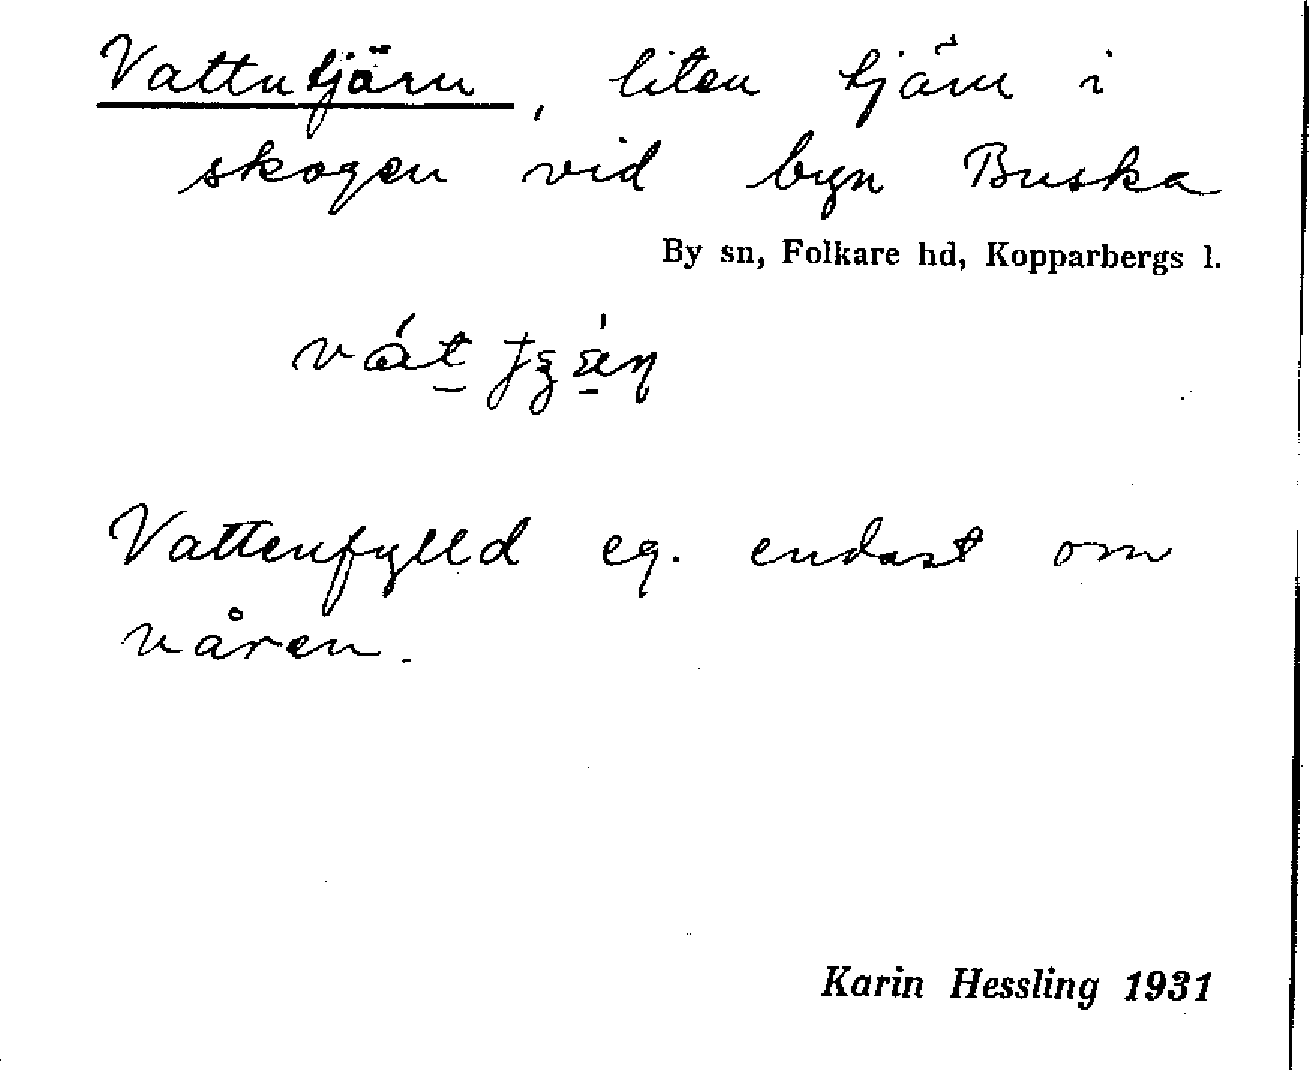 Vattutjärn, liten tjärn i
skogen vid byn Buska
By sn, Folkare hd, Kopparbergs l.
Vattenfylld eg. endast om
våren.
Karin Hessling 1931